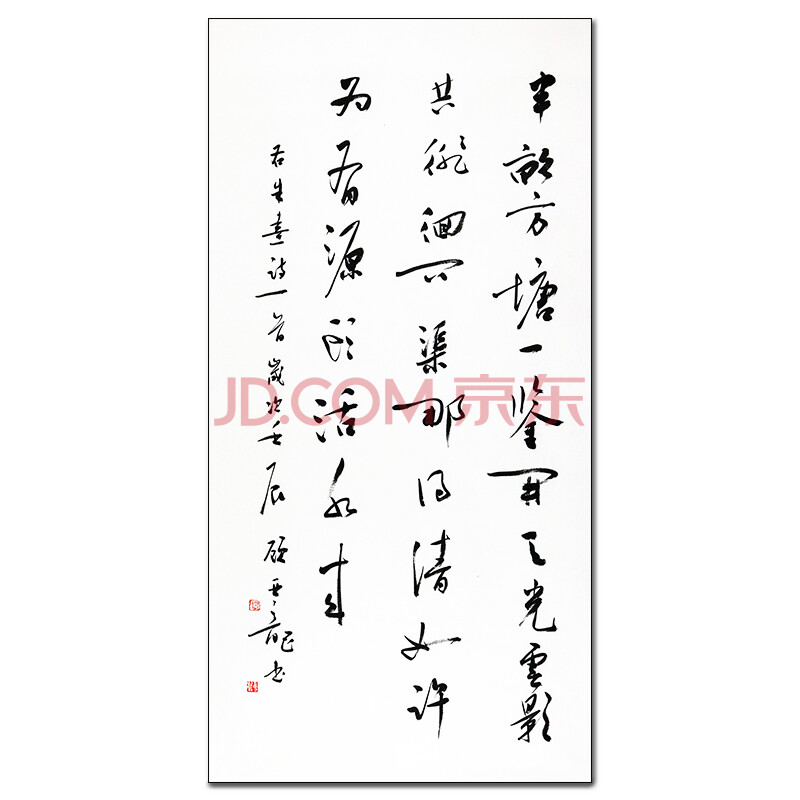 半畝方塘一鑒開天光雲影
共徘徊问渠那得清如許
为有源頭活水来
右朱熹詩一首歲次壬辰 顧亞龍书
JD.COM 京东